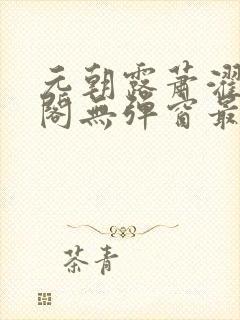 元朝露萧濯
阁無弹窗最
茶青